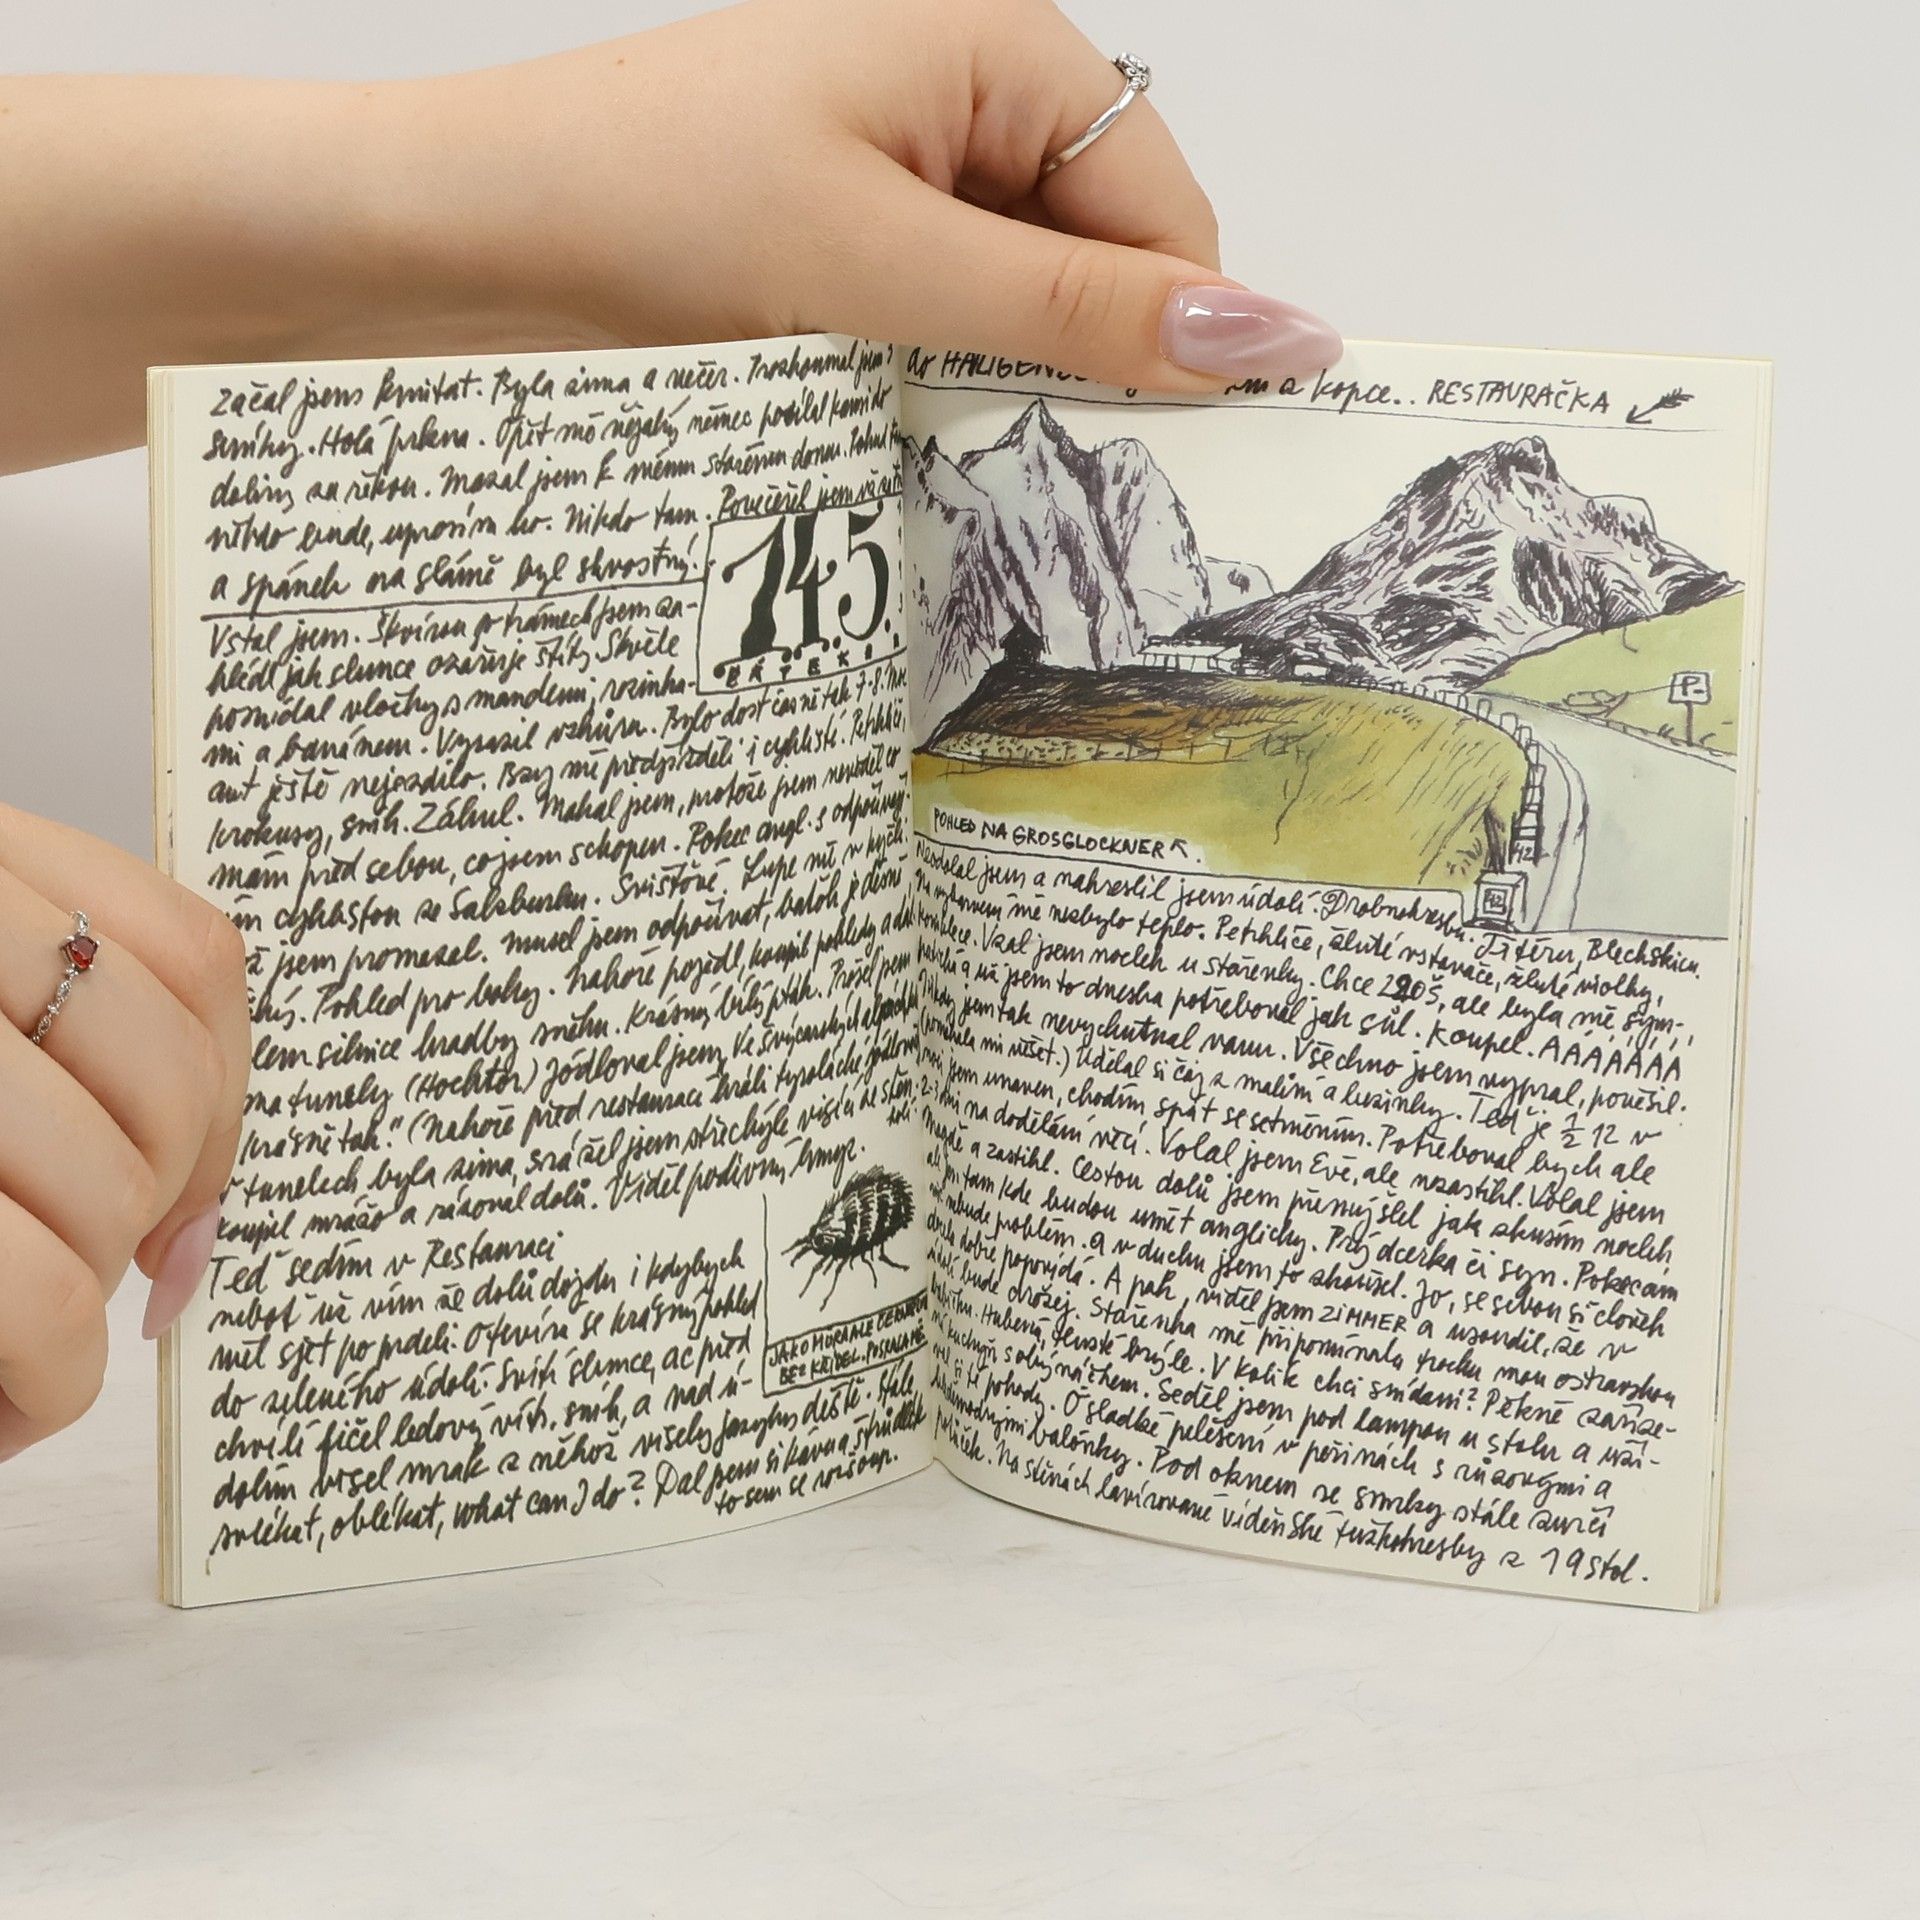 Začal jsem kmitat. Byla zima a večer. Prozkoumal jsem
smrky. Holá prkna. Opět mě nějaký němec posílal kamsi do
doliny za řekou. Mazal jsem k mému starému domu. Pokud tu
nikdo bude, uprosím ho. Nikdo tam. Povečeřel jsem
a spánek na slámě byl skvostný.
14.5.
PÁTEK
Vstal jsem. Škvírou v trámech jsem za-
hlédl jak slunce ozařuje štíty. Skvěle
posnídal vločky s mandlemi, rozinka-
mi a banánem. Vyrazil vzhůru. Bylo dost časně tak 7-8. Moc
aut ještě nejezdilo. Brzy mě předjížděli i cyklisté. Petrklíče,
krokusy, sníh. Záhul. Makal jsem, protože jsem nevěděl co
mám před sebou, co jsem schopen. Pokec angl. s odpočívaj.
cyklistou ze Salzburku. Svišťové. Lupe mě v kyčli.
jsem promazal. Musel jsem odpočívat, batoh je děsně
Pohled pro baby. Nahoře pojedl, koupil pohledy a dál
lem silnice hradby sněhu. Krásný bílý pták. Prošel jsem
tunely (Hochtor) Jódloval jsem, "Ve švýcarských alpách je
krásně tak." (Nahoře před restaurací hráli tyrolácké
V tunelech byla zima, srážel jsem střechýle visící ze stěn
Koupil mražo a rázoval dolů. Viděl podivný hmyz.
JAKO MŮRA ALE ČERNÁ
BEZ KŘÍDEL.
Teď sedím v Restauraci
neboť už vím že dolů dojdu i kdybych
měl sjet po prdeli. Otevírá se krásný pohled
do zeleného údolí. Svítí slunce, ač před
chvílí fičel ledový vích, sníh, a nad ú-
dolím visel mrak z něhož visely jazyky deště. Stále
svlékat, oblékat, what can I do? Dal jsem si kávu a štrúdlík
to sem se rozšoup.
do a kopce.. RESTAURAČKA
P
42
POHLED NA GROSGLOCKNER
Neodolal jsem a nakreslil jsem údolí. Drobnokresbu.
mě nezbylo teplo. Petrklíče, žluté vstavače, žluté violky,
Vzal jsem nocleh u stařenky. Chce 220š, ale byla mě sym-
patická a už jsem to dneska potřeboval jak sůl. Koupel. AÁÁÁÁÁÁ
Nikdy jsem tak nevychutnal vanu. Všechno jsem vypral, pověsil.
(pomáhala mi věšet.) Udělal si čaj z malin a buzinky. Teď je 1/2 12 v
noci jsem unaven, chodím spát se setměním. Potřeboval bych ale
2-3 dni na dodělání věcí. Volal jsem Evě, ale nezastihl. Volal jsem
Magdě a zastihl. Cestou dolů jsem přemýšlel jak zkusím nocleh
ale jen tam kde budou umět anglicky. Prý dcerka či syn. Pokecám
nebude problém. a v duchu jsem to zkoušel. Jo, se sebou si člověk
docela dobře popovídá. A pak, viděl jsem ZIMMER a usoudil, že v
údolí bude dražej. Stařenka mě připomínala trochu mou ostravskou
babičku. Hubená, tlusté brýle. V kolik chci snídani? Pěkně zaříze-
ná kuchyň s obýváčkem. Seděl jsem pod lampou u stolu a uží-
val si té pohody. Ó sladké pelešení v peřinách s růžovými a
bleděmodrými balónky. Pod oknem se smrky stále zurčí
potůček. Na stěnách lavírované vídeňské tužkokresby z 19 stol.